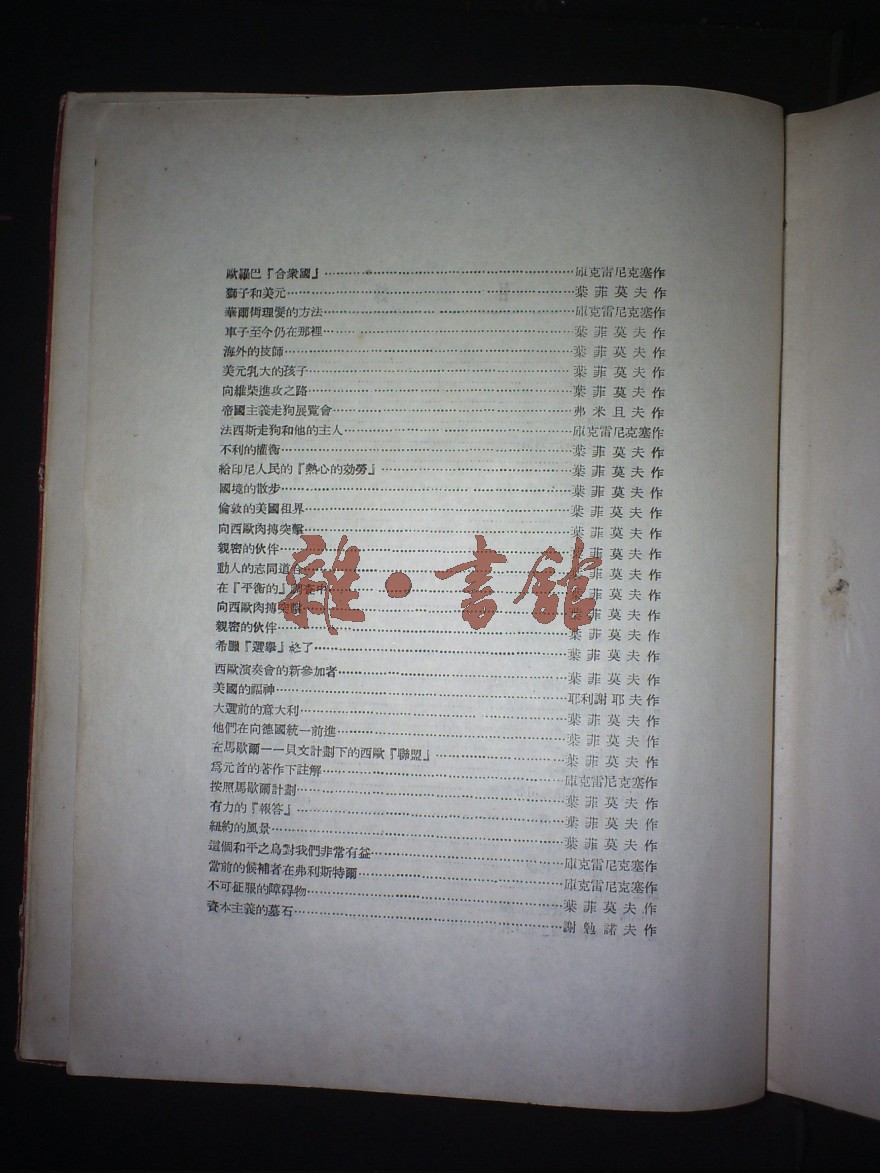 歐羅巴『合衆國』……庫克雷尼克塞作
獅子和美元……葉菲莫夫作
華爾街理髮的方法……庫克雷尼克塞作
車子至今仍在那裡……葉菲莫夫作
海外的技師……葉菲莫夫作
美元乳大的孩子……葉菲莫夫作
向維柴進攻之路……葉菲莫夫作
帝國主義走狗展覽會……弗米且夫作
法西斯走狗和他的主人……庫克雷尼克塞作
不利的權衡……葉菲莫夫作
給印尼人民的『熱心的効勞』……葉菲莫夫作
國境的散步……葉菲莫夫作
倫敦的美國租界……葉菲莫夫作
向西歐肉搏突擊……葉菲莫夫作
親密的伙伴……葉菲莫夫作
動人的志同道合……葉菲莫夫作
在『平衡的』……葉菲莫夫作
向西歐肉搏突擊……葉菲莫夫作
親密的伙伴……葉菲莫夫作
希臘『選舉』終了……葉菲莫夫作
西歐演奏會的新參加者……葉菲莫夫作
美國的福神……耶利謝耶夫作
大選前的意大利……葉菲莫夫作
他們在向德國統一前進……葉菲莫夫作
在馬歇爾——貝文計劃下的西歐『聯盟』……葉菲莫夫作
爲元首的著作下註解……庫克雷尼克塞作
按照馬歇爾計劃……葉菲莫夫作
有力的『報答』……葉菲莫夫作
紐約的風景……葉菲莫夫作
這個和平之鳥對我們非常有益……庫克雷尼克塞作
當前的候補者在弗利斯特爾……庫克雷尼克塞作
不可征服的障碍物……葉菲莫夫作
資本主義的墓石……謝勉諾夫作
雜·書館